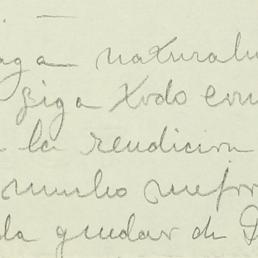 aga natural
ziga todo con
a la rendicion
mucho mejor
da quedar de